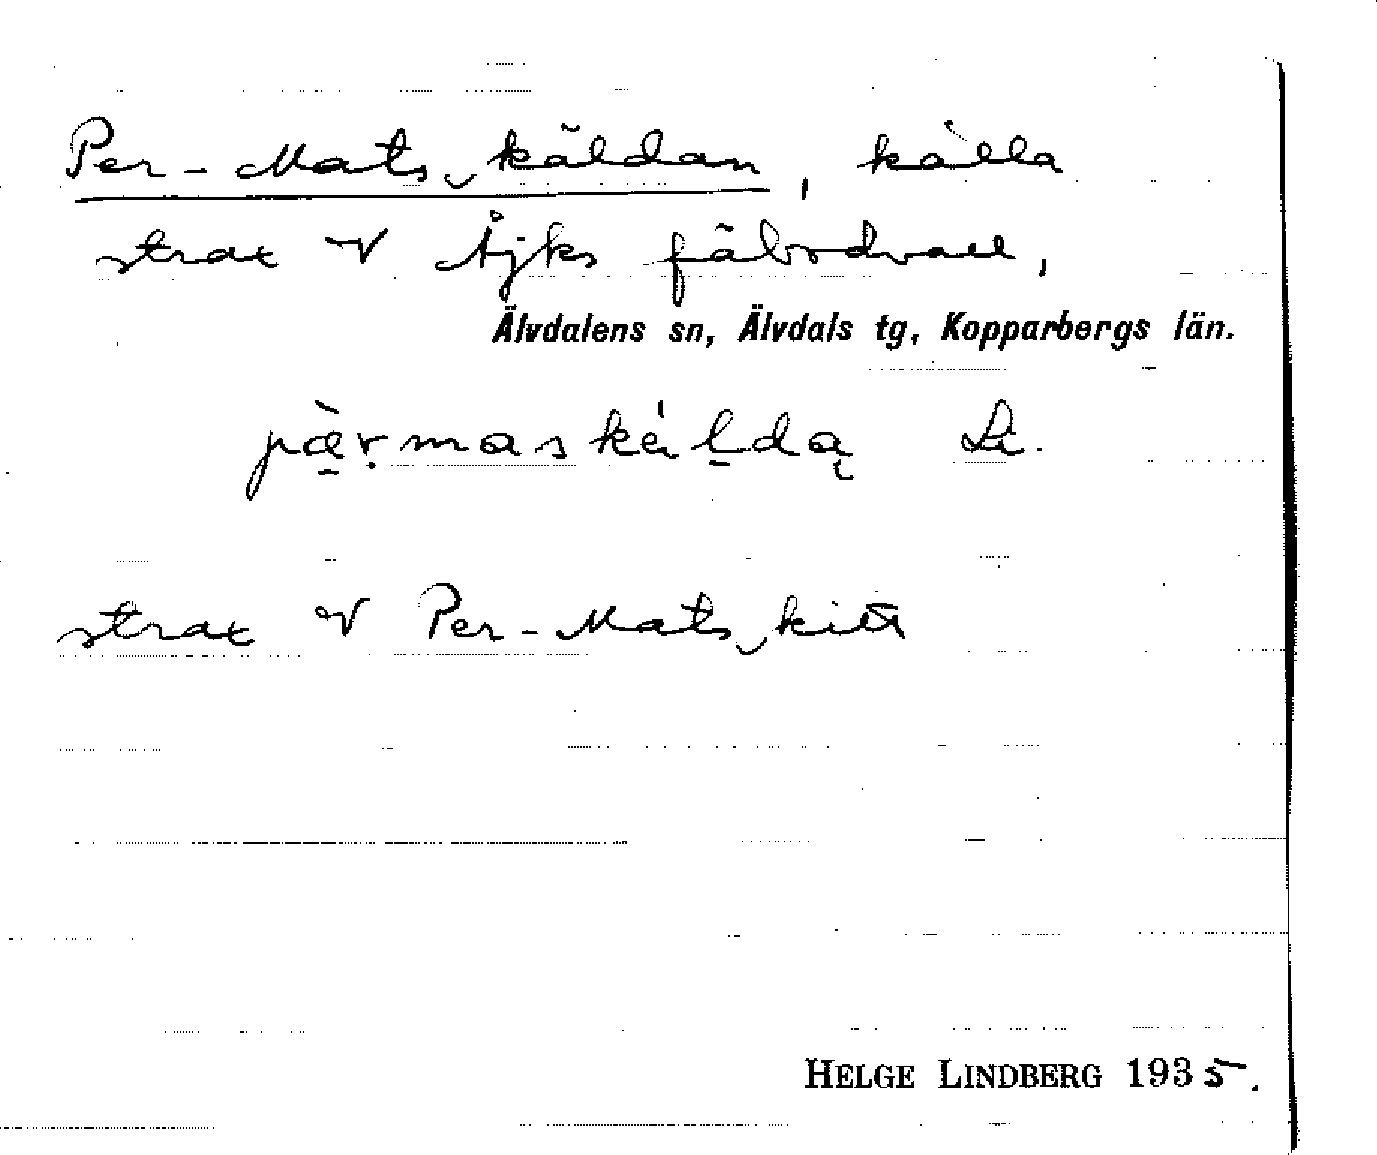 Per-Mats‿käldan, källa
strax V Åjks fäbodvall,
Älvdalens sn, Älvdals tg, Kopparbergs län.
pæ̠̀ṛmaskäl̠dą Li.
strax V Per-Mats‿kitt
HELGE LINDBERG 1935.